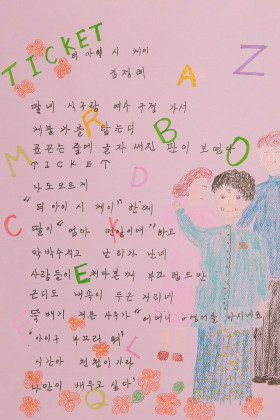 TICKET
티 아이 시 케이
김정례
딸네 식구랑 여수 구경 가서
케블카를 탔는디
표끈는 줄에 글자 써진 판이 보인다
TICKET
나도 모르게
"티 아이 시 케이" 한께
딸이 "엄마 만일이여" 하고
박박수치고 난리가 났네
사람들이 쳐다본께 부끄럽드만
근디도 내속이
뚝배기 같은 사우가 "어머니 영어를 아시네요"
"아이구 부끄러 워"
시간아 천천히 가라
나만이 배우고 싶다
A Z R B O M D C K E L Q